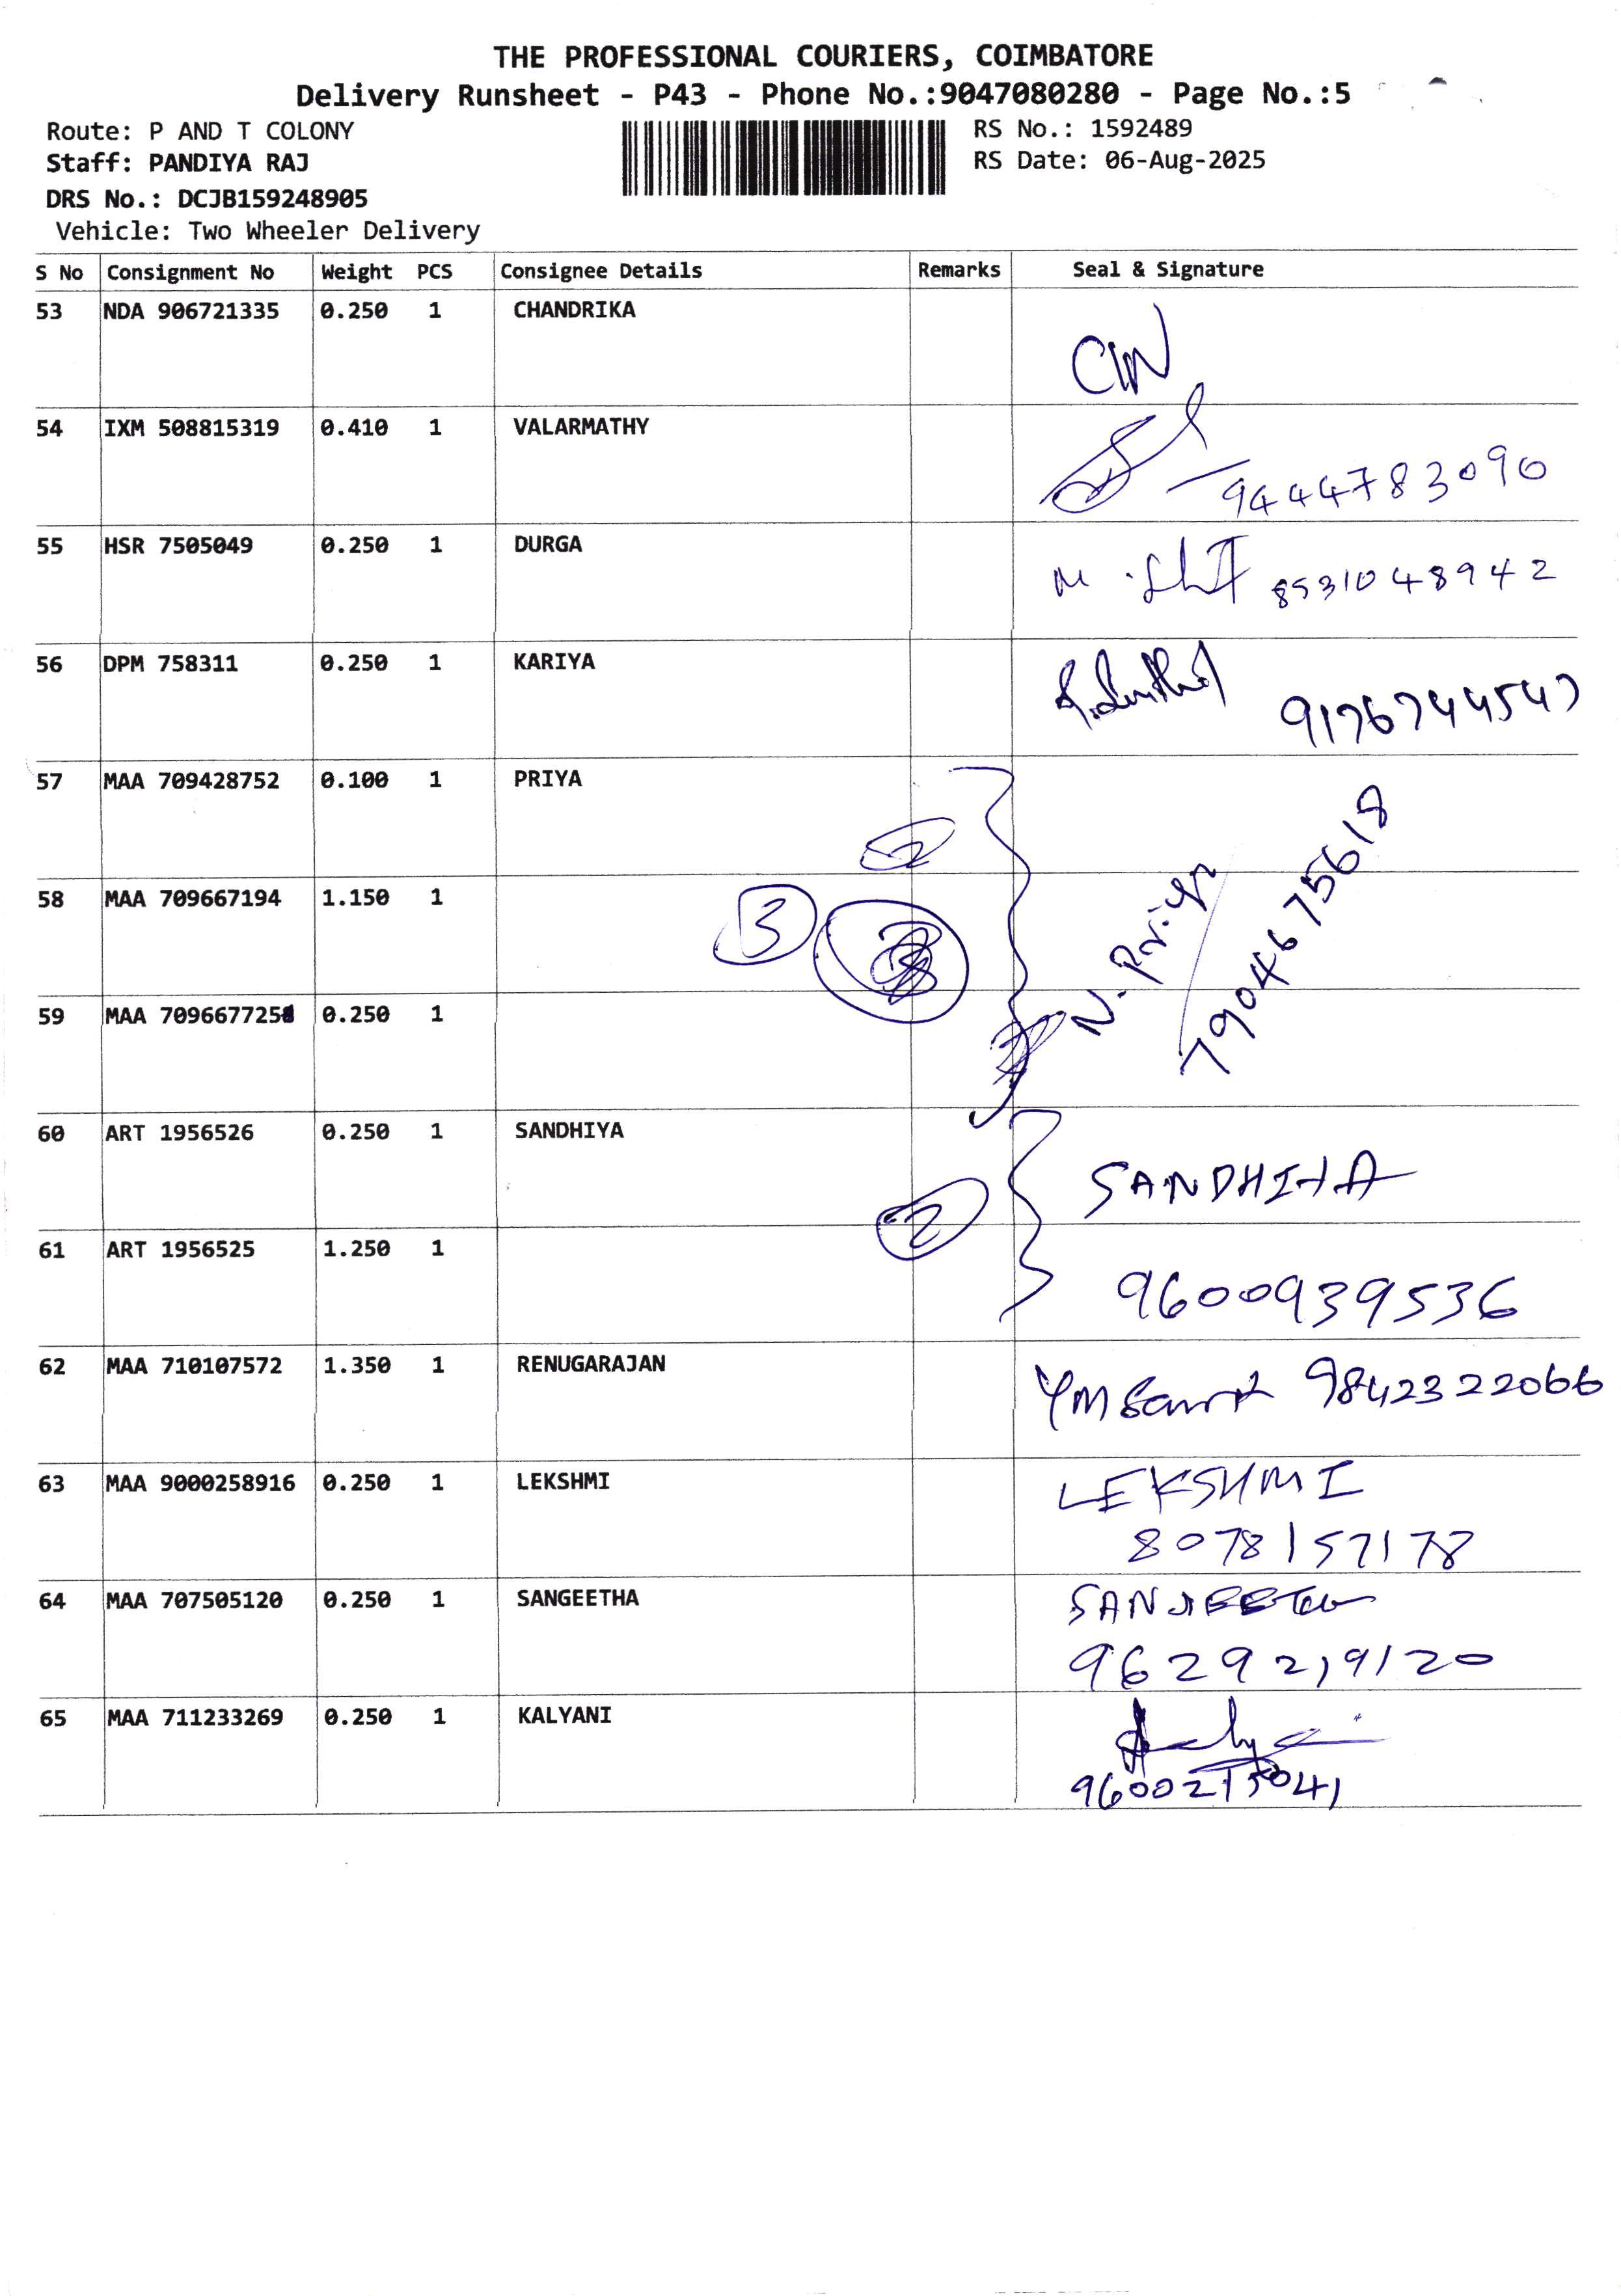 THE PROFESSIONAL COURIERS, COIMBATORE
Delivery Runsheet - P43 - Phone No.:9047080280 - Page No.:5
Route: P AND T COLONY
Staff: PANDIYA RAJ
DRS No.: DCJB159248905
Vehicle: Two Wheeler Delivery
RS No.: 1592489
RS Date: 06-Aug-2025
S No Consignment No Weight PCS Consignee Details Remarks Seal & Signature
53 NDA 906721335 0.250 1 CHANDRIKA
54 IXM 508815319 0.410 1 VALARMATHY
9444783090
55 HSR 7505049 0.250 1 DURGA
8531048942
56 DPM 758311 0.250 1 KARIYA
9176744547
57 MAA 709428752 0.100 1 PRIYA
2
58 MAA 709667194 1.150 1
3
N. Priya
7904675618
59 MAA 709667725 0.250 1
60 ART 1956526 0.250 1 SANDHIYA
SANDHIYA
2
61 ART 1956525 1.250 1
9600939536
62 MAA 710107572 1.350 1 RENUGARAJAN
9842322066
63 MAA 9000258916 0.250 1 LEKSHMI
LEKSHMI
8078157178
64 MAA 707505120 0.250 1 SANGEETHA
9629219120
65 MAA 711233269 0.250 1 KALYANI
9600215041